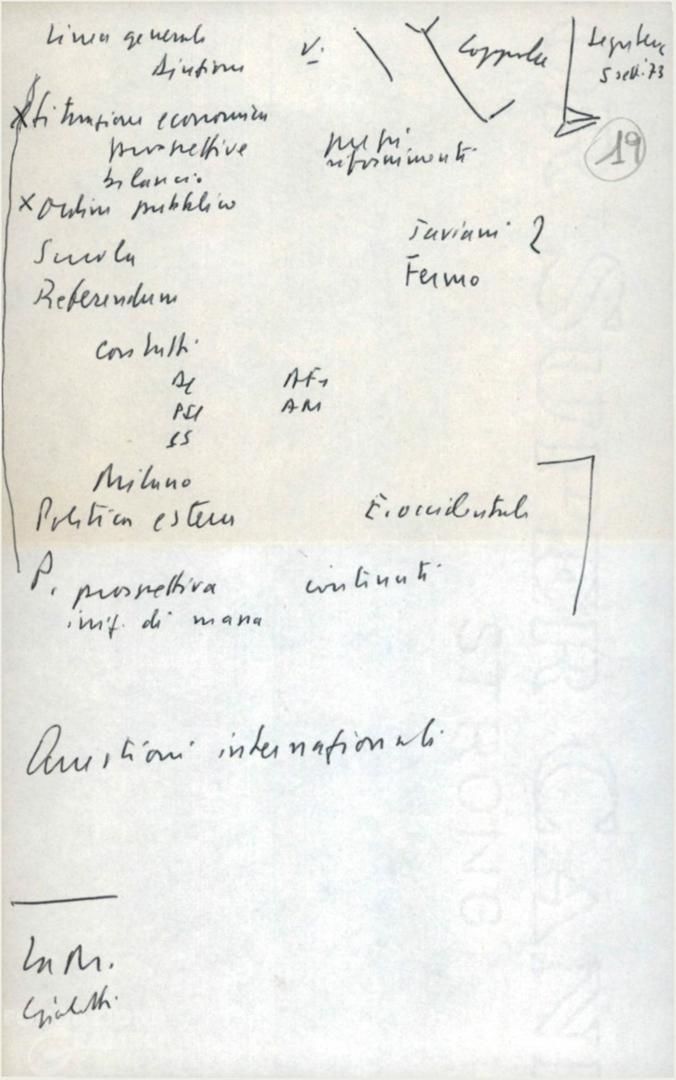 Linea generale
V.
Coppola
Segreteria
5 sett. 73
19
Situazione economica
prospettive
prezzi
rifornimenti
bilancio
x Ordine pubblico
Scuola
Taviani 2
Fermo
Referendum
contatti
DC AF
PSI AM
SS
Milano
Politica estera E. occidentale
P. prospettiva continuità
iniz. di massa
Questioni internazionali
La M.
Giolitti